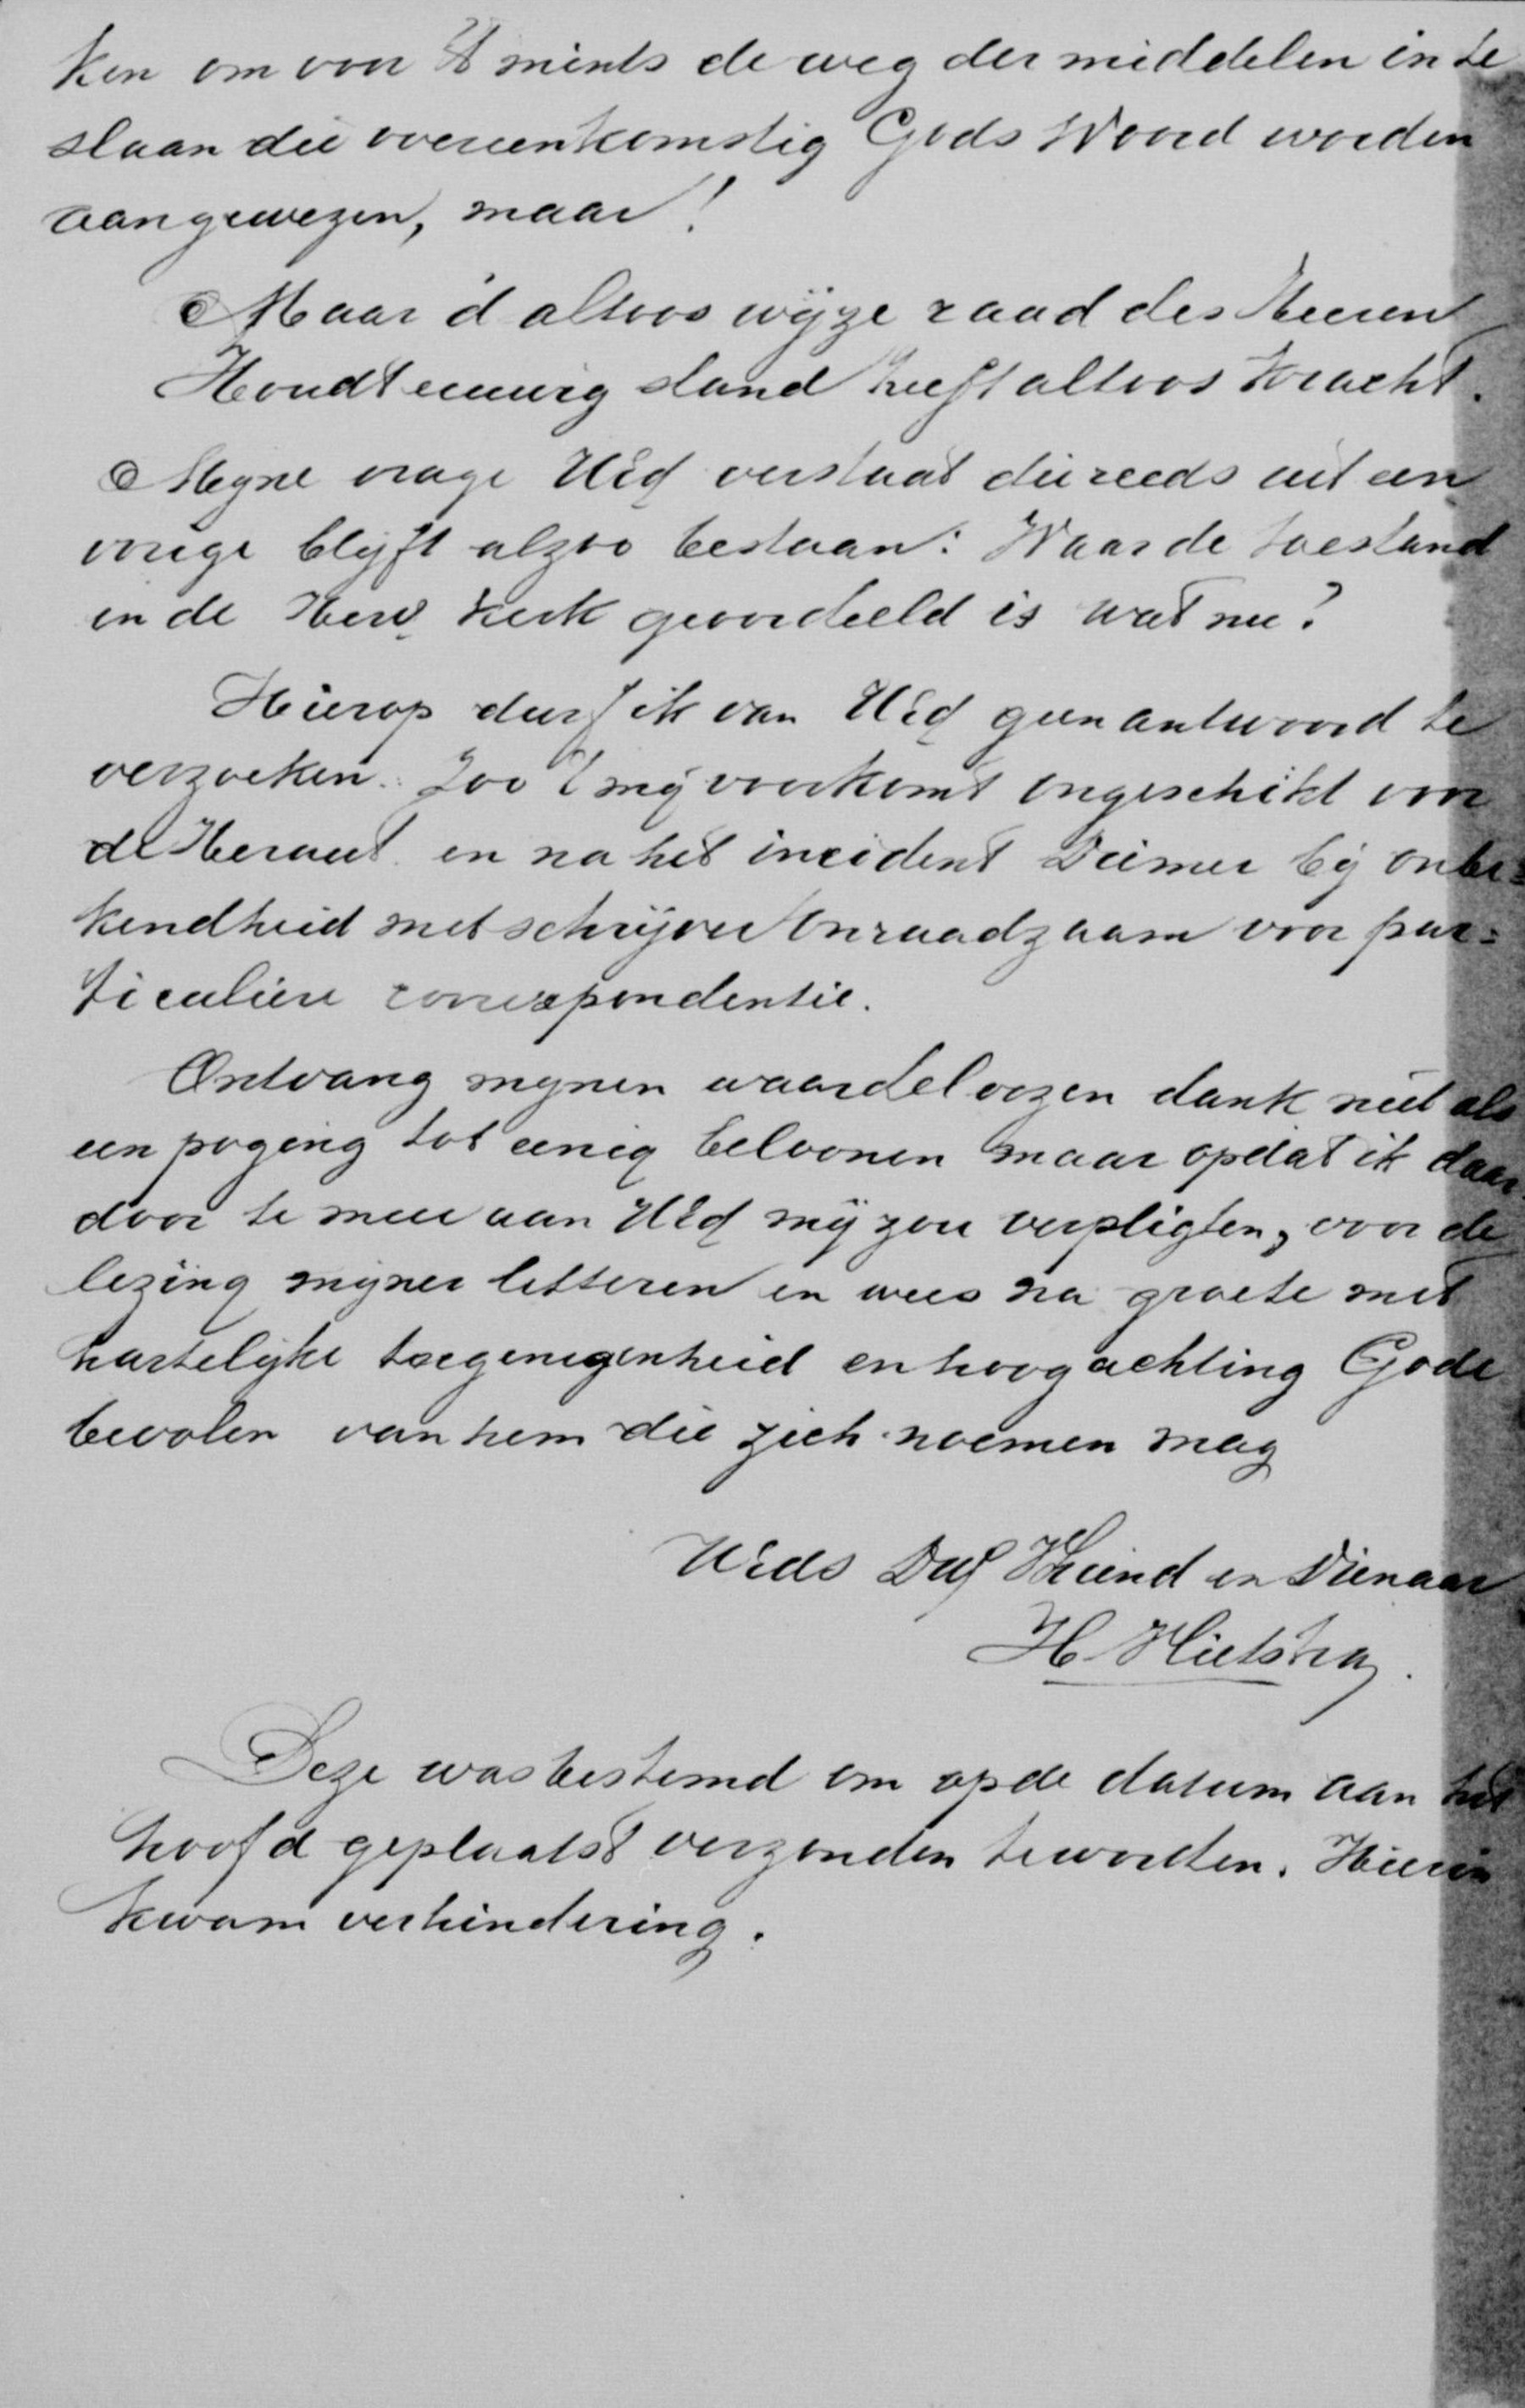 ken om voor 't minst de weg der middelen in te
slaan die overeenkomstig Gods Woord worden
aangewezen, maar!
Maar d' altoos wijze raad des Heeren
Houdt eeuwig stand heeft altoos kracht.
Myne vrage UEd verstaat die reeds uit een
vorige blyft alzoo bestaan: Waar de toestand
in de Herv. Kerk geoordeeld is wat nu?
Hierop durf ik van UEd geen antwoord te
verzoeken. Zoo 't mij voorkomt ongeschikt voor
de Heraut en na het incident Diemer bij onbe=
kendheid met schrijver onraadzaam voor par=
ticuliere correspondentie.
Ontvang mynen waardeloozen dank niet als
een poging tot eenig beloonen maar opdat ik daar
door te meer aan UEd mij zou verpligten, voor de
lezing mijner letteren en wees na groete met
hartelyke toegenegenheid en hoogachting Gode
bevolen van hem die zich noemen mag
UEds Dw Vriend en Dienaar
H Hietstra.
Deze was bestemd om op de datum aan het
hoofd geplaatst verzonden te worden. Hierin
kwam verhindering.